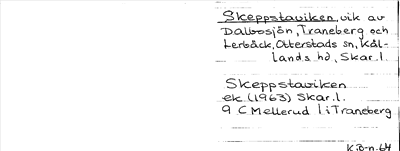 Skeppstaviken, vik av
Dalbosjön, Traneberg och
Lerbäck, Otterstads sn, Kål-
lands hd, Skar.l.
Skeppstaviken
ek (1963) Skar.l.
9 C Mellerud l i Traneberg
KB-n.64